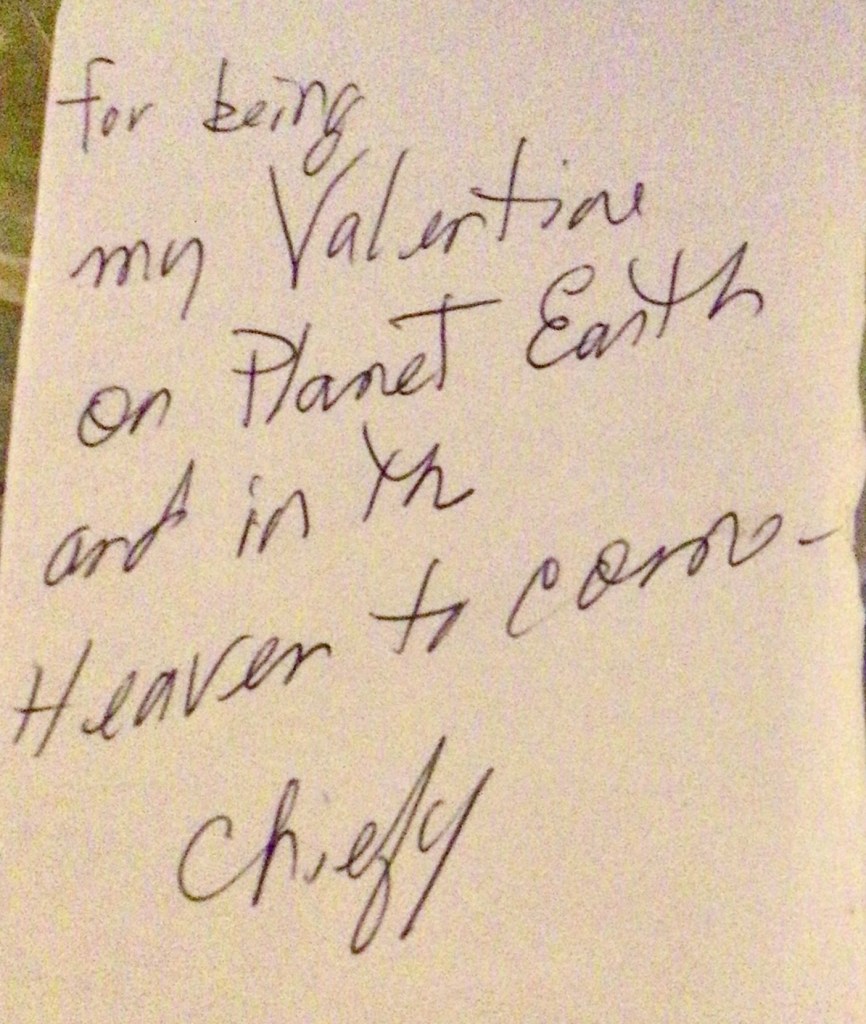 for being
my Valentine
on Planet Earth
and in the
Heaven to come -
Chiefy